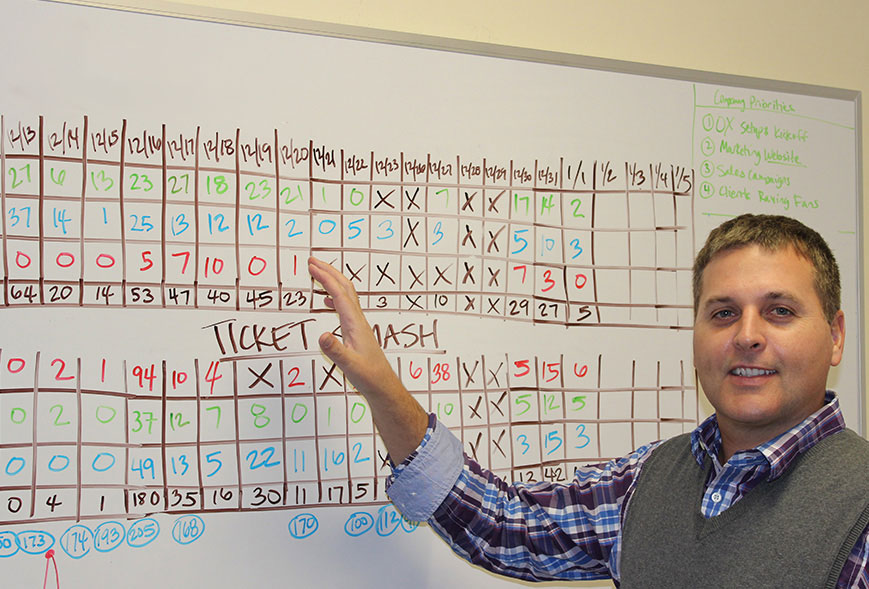 12/13 12/14 12/15 12/16 12/17 12/18 12/19 12/20 12/21 12/22 12/23 12/26 12/27 12/28 12/29 12/30 12/31 1/1 1/2 1/3 1/4 1/5
27 6 13 23 27 18 23 21 1 0 X X 7 X X 17 14 2
37 14 1 25 13 12 12 2 0 5 3 X 3 X X 5 10 3
0 0 0 5 7 10 0 1 X X X X X X 7 3 0
64 20 14 53 47 40 45 23 3 X 10 X X 29 27 5
TICKET SMASH
0 2 1 94 10 4 X 2 X 6 38 X X 5 15 6
0 2 0 37 12 7 8 0 1 0 10 X X 5 12 5
0 0 0 49 13 5 22 11 16 2 X X X 3 15 3
0 4 1 180 35 16 30 11 17 5 42
173 174 193 205 168 170 100 112
Company Priorities
① OX Setup & Kickoff
② Marketing Website
③ Sales Campaigns
④ Clients Raving Fans